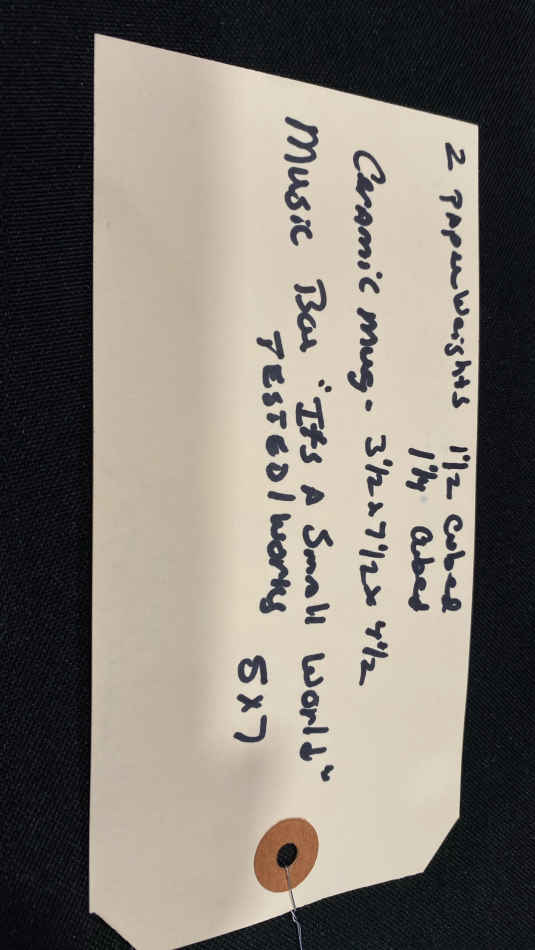 2 PAPerWeights 1 1/2 cubed
1 1/4 Cubed
Ceramic Mug - 3 1/2 x 7 1/2 x 4 1/2
Music Box "It's A Small World"
TESTED / Works
5 x 7